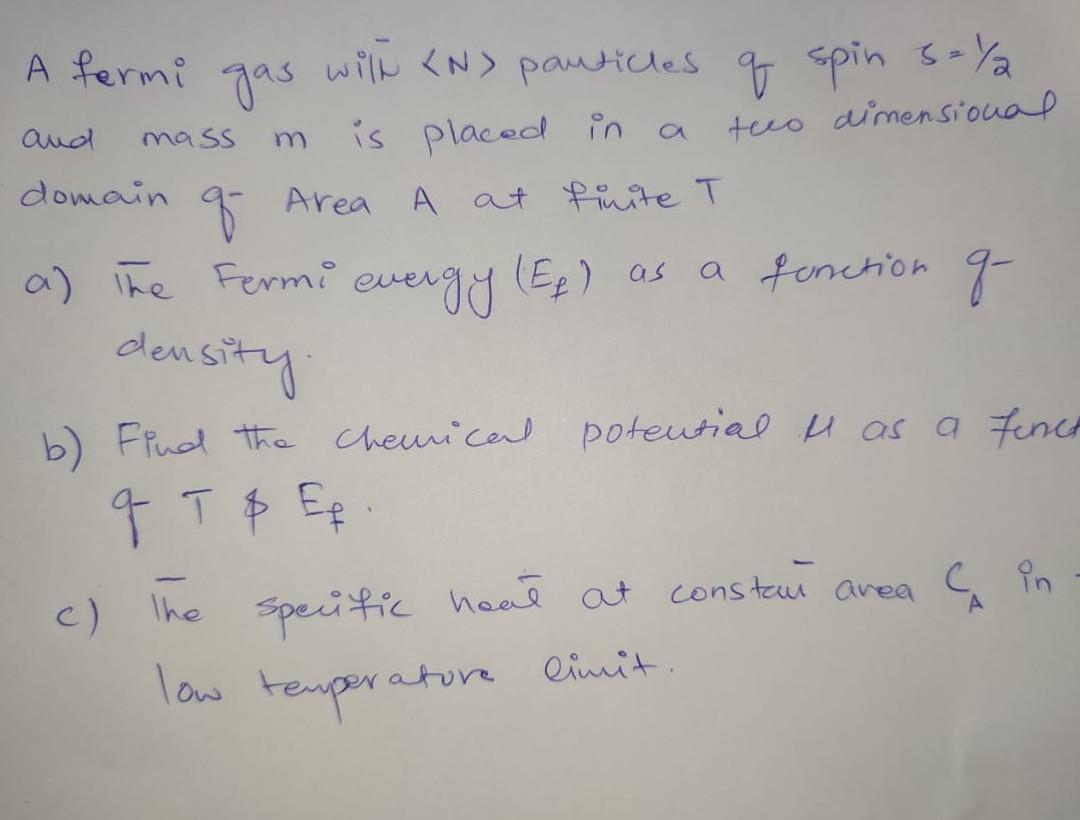 A fermi gas with <N> particles of spin s=1/2
and mass m is placed in a two dimensional
domain of Area A at finite T
a) The Fermi energy (Ef) as a function of
density.
b) Find the chemical potential μ as a funct
of T & Ef.
c) The specific heat at constant area CA in
low temperature limit.